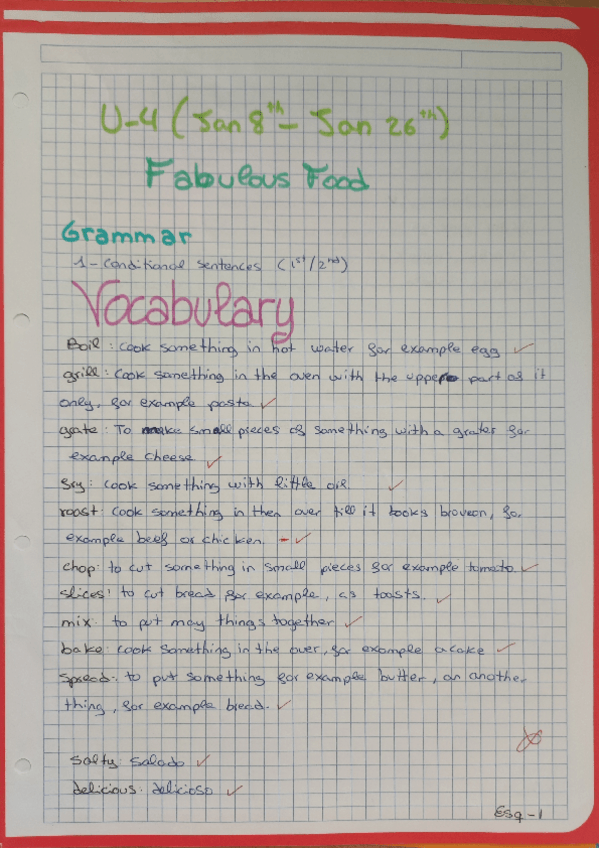 U-4 (Jan 8th - Jan 26th)
Fabulous Food
Grammar
1- Conditional sentences (1st/2nd)
Vocabulary
Boil: cook something in hot water for example egg
grill: Cook something in the oven with the upper part of it
only, for example pasta
grate: To make small pieces of something with a grater for
example cheese
fry: cook something with little oil
roast: cook something in then over till it looks broween, for
example beef or chicken.
chop: to cut something in small pieces for example tomato.
slices: to cut bread for example, as toasts.
mix: to put may things together
bake: cook something in the over, for example a cake
Spread: to put something for example butter, on another
thing, for example bread.
salty: salado
delicious: delicioso
Esq-1